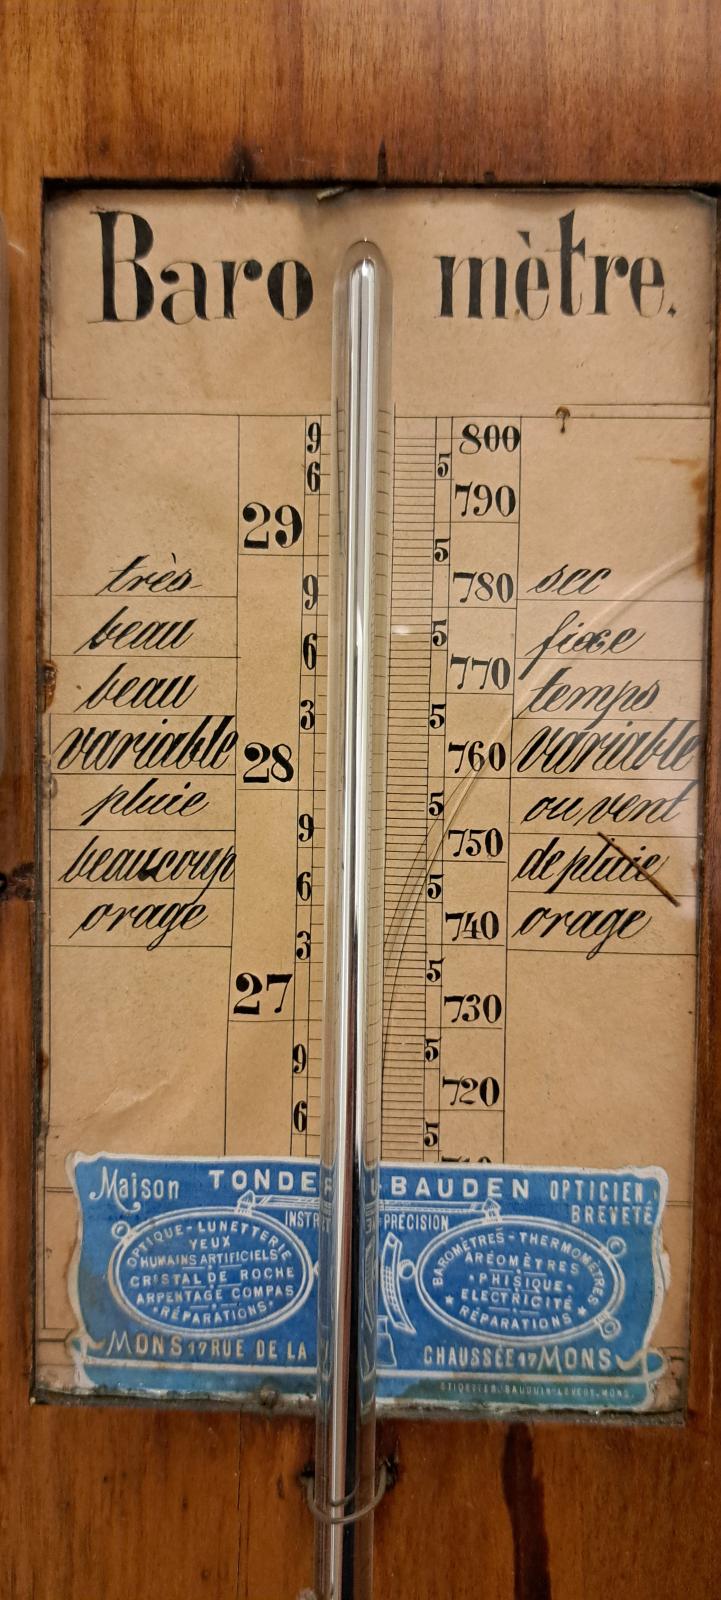 Baro mètre.
9 800
6 5
790
29
5
très 9 780 sec
beau 6 5 fixe
770
beau temps
3 5
variable 28 760 variable
pluie 5 ou vent
9 750
beaucoup 6 5 de pluie
orage 740 orage
3
27 5 730
9 5
720
6 5
Maison TONDE BAUDEN OPTICIEN.
BREVETÉ
INST PRÉCISION
OPTIQUE-LUNETTERIE
YEUX
HUMAINS ARTIFICIELS
CRISTAL DE ROCHE
ARPENTAGE COMPAS
RÉPARATIONS
BAROMÈTRES-THERMOMÈTRES
ARÉOMÈTRES
PHISIQUE
ELECTRICITÉ
RÉPARATIONS
MONS 17 RUE DE LA CHAUSSÉE 17 MONS